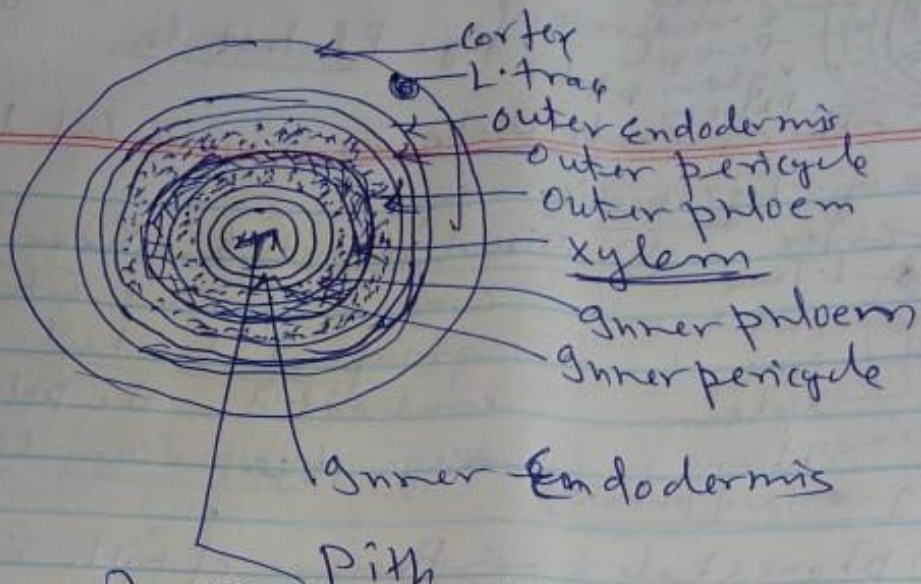 Cortex
L. trace
Outer Endodermis
Outer pericycle
Outer phloem
Xylem
Inner phloem
Inner pericycle
Inner Endodermis
Pith